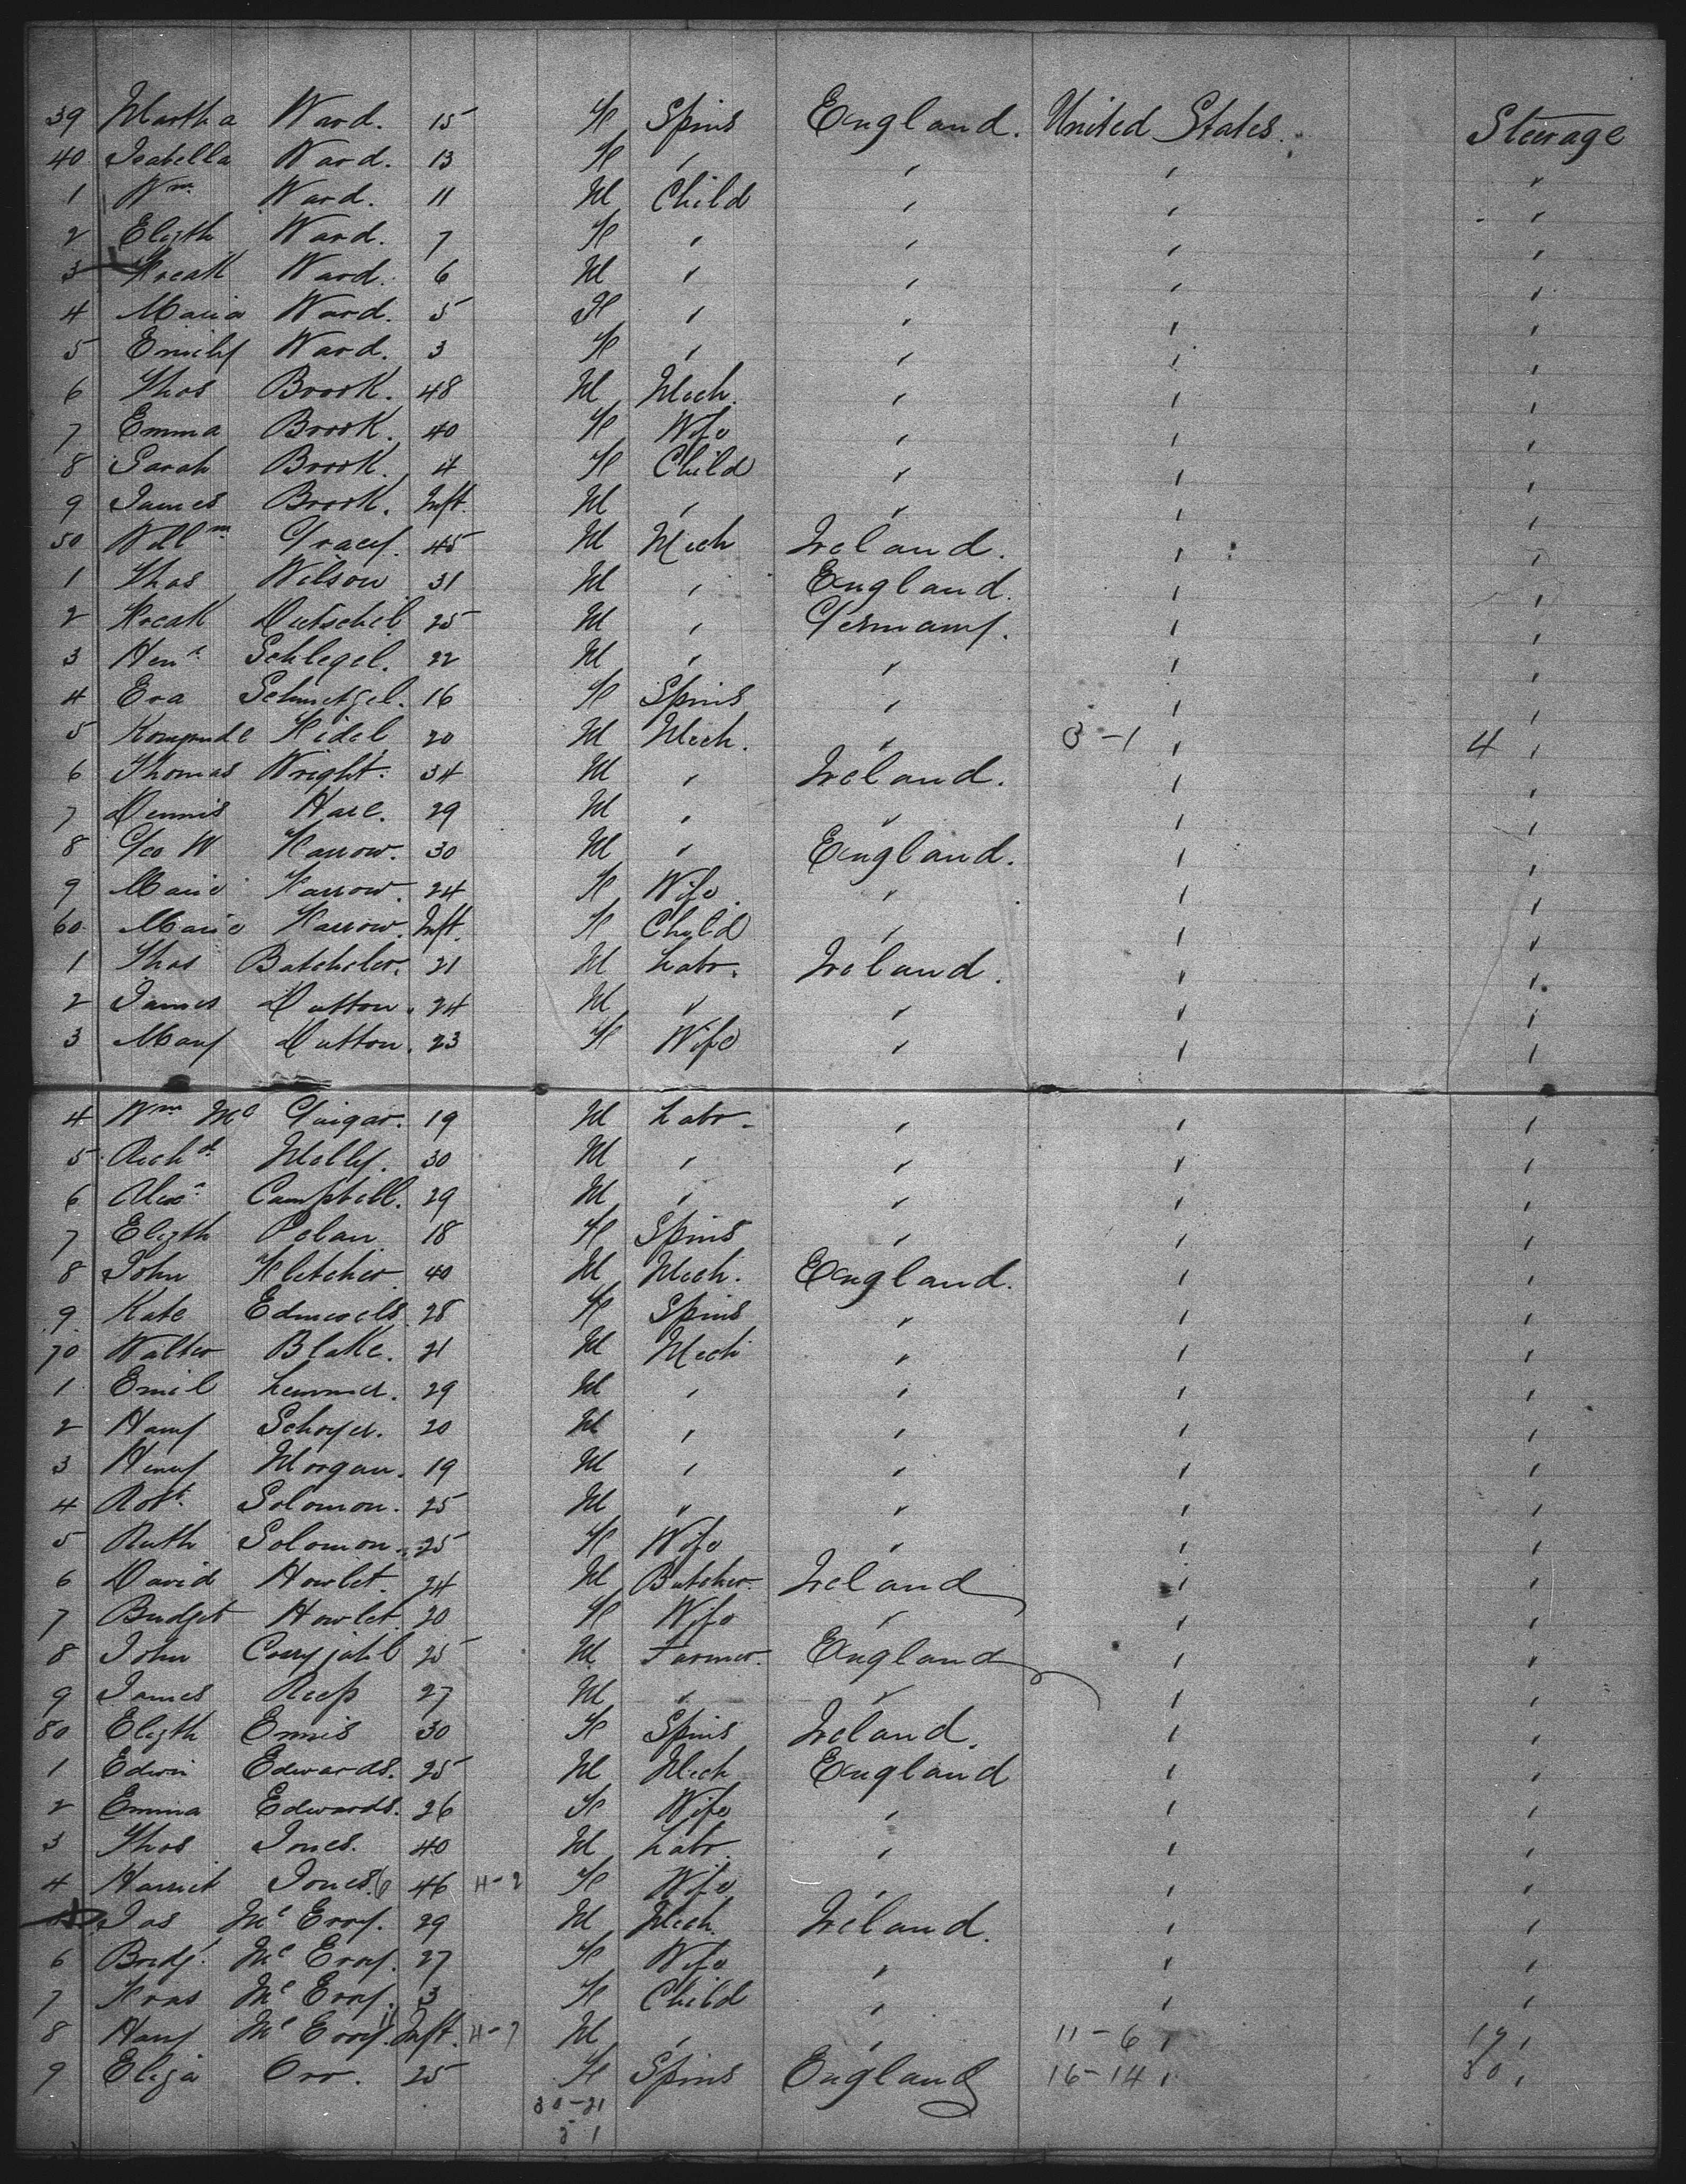 39 Martha Ward. 15 F Spins England. United States. Steerage
40 Isabella Ward. 13 F " " " "
1 Wm Ward. 11 M Child " " "
2 Elizth Ward. 7 F " " " "
3 Fredk Ward. 6 M " " " "
4 Maria Ward. 5 F " " " "
5 Emily Ward. 3 F " " " "
6 Thos Brook. 48 M Mech. " " "
7 Emma Brook. 40 F Wife " " "
8 Sarah Brook. 4 F Child " " "
9 James Brook. Inft. M " " " "
50 Willm Gracy. 45 M Mech Ireland. " "
1 Thos Wilson 31 M " England. " "
2 Fredk 25 M " Germany. " "
3 Schlegel. 22 M " " " "
4 Eva 16 F Spins " " "
5 Fidel 20 M Mech. " 3-1 " 4 "
6 Thomas Wright. 34 M " Ireland. " "
7 Dennis Hare. 29 M " " " "
8 Geo W Farrow. 30 M " England. " "
9 Marie Farrow. 24 F Wife " " "
60 Marie Farrow. Inft. F Child " " "
1 Thos Batcheler. 21 M Labr. Ireland. " "
2 James Dutton. 24 M " " " "
3 Mary Dutton. 23 F Wife " " "
4 Wm Mc Guigar. 19 M Labr. " " "
5 Richd Melly. 30 M " " " "
6 Alexr Campbell. 29 M " " " "
7 Elizth Pelan 18 F Spins " " "
8 John Fletcher 40 M Mech. England. " "
9 Kate 28 F Spins " " "
70 Walter Blake. 21 M Mech " " "
1 Emil 29 M " " " "
2 Harry 20 M " " " "
3 Henry Morgan. 19 M " " " "
4 Robt. Solomon. 25 M " " " "
5 Ruth Solomon. 25 F Wife " " "
6 David Howlet. 24 M Butcher. Ireland " "
7 Bridget Howlet 20 F Wife " " "
8 John 25 M Farmer. England " "
9 James 27 M " " " "
80 Elizth Ennis 30 F Spins Ireland. " "
1 Edwin Edwards. 25 M Mech England " "
2 Emma Edwards. 26 F Wife " " "
3 Thos Jones. 40 M Labr. " " "
4 Harriet Jones. 46 F Wife " " "
Jas Mc Evoy. 29 M Mech. Ireland. " "
6 Bridgt Mc Evoy. 27 F Wife " " "
7 Fras Mc Evoy. 3 F Child " " "
8 Harry Mc Evoy. Inft. M " " 11-6 " "
9 Eliza Orr. 25 F Spins England 16-14 " 30 "
30-21